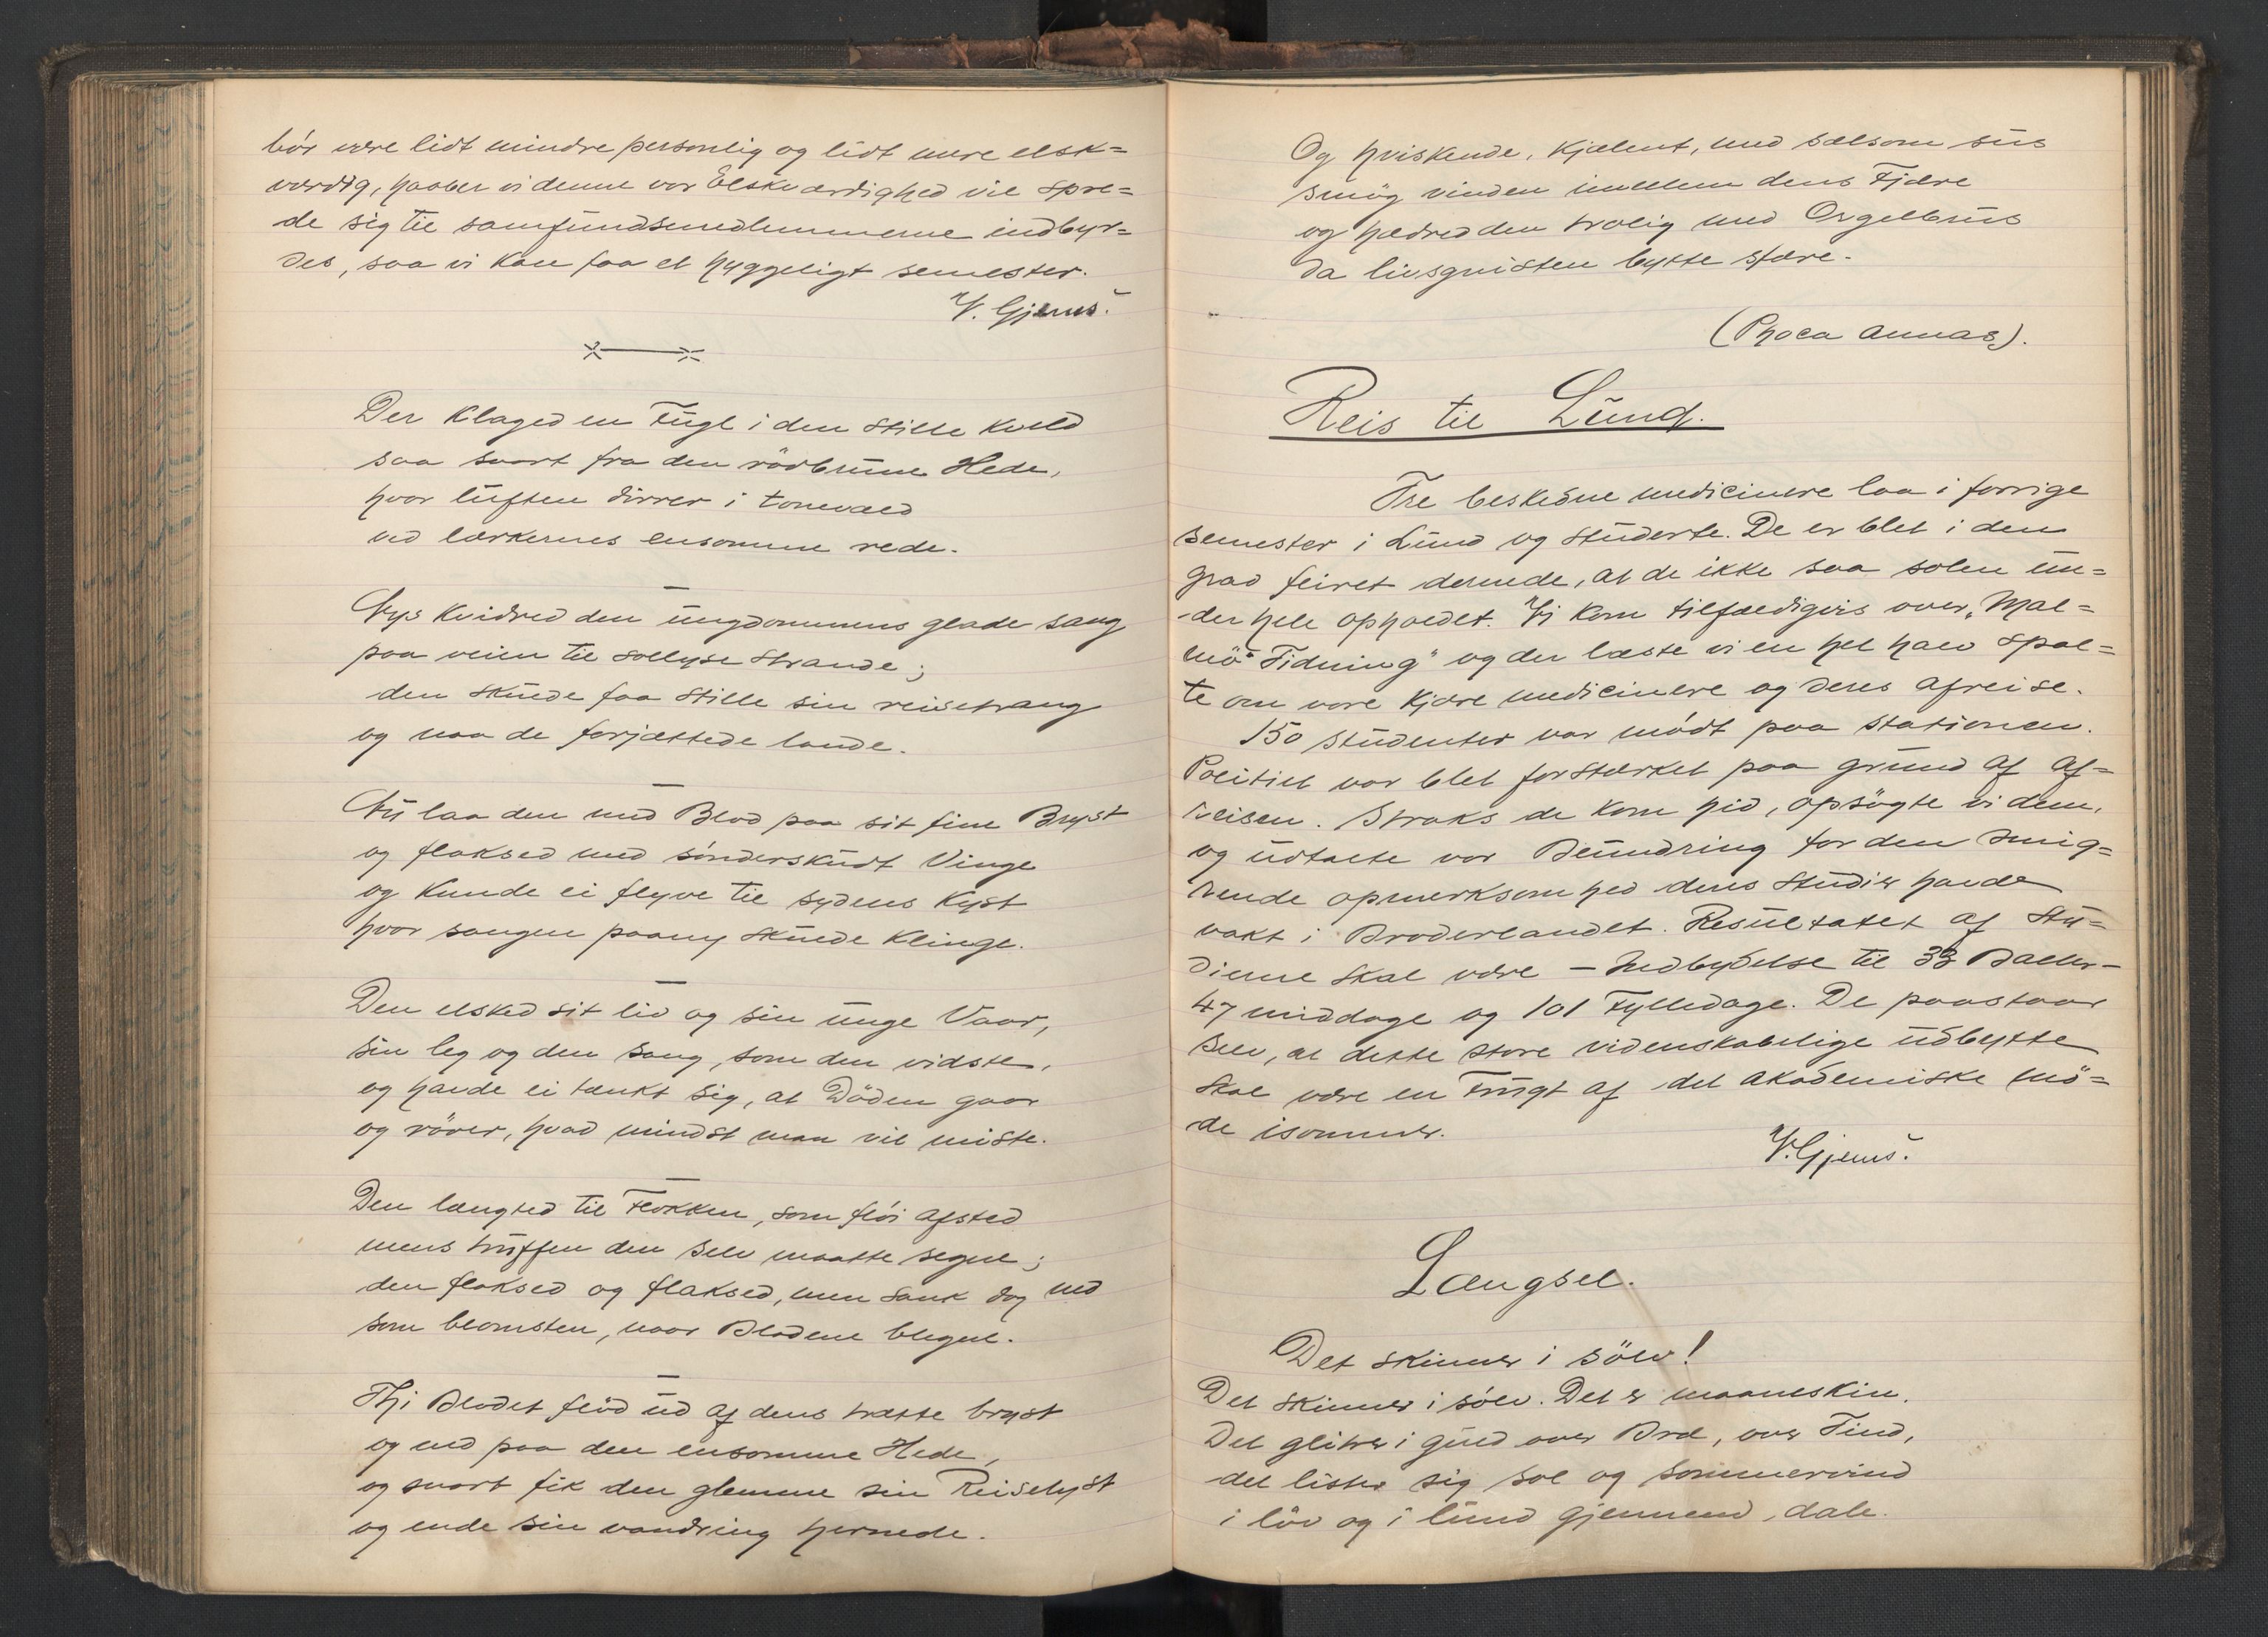 bör være lidt mindre personlig og lidt mere elsk=
værdig, haaber vi denne vor Elskværdighed vil spre=
de sig til samfundsmedlemmerne indbyr=
des, saa vi kan faa et hyggeligt semester.
V. Gjems.
Der klaged en Fugl i den stille kveld
saa saart fra den rödbrune Hede,
hvor luften dirrer i tonevæld
ved lærkernes ensomme rede.
Nys kvidred den ungdommens glade sang
paa veien til sollyse Strande;
den skulde faa stille sin reisetrang
og naa de forjættede lande.
Nu laa den med Blod paa sit fine Bryst
og flaksed med sönderskudt Vinge
og kunde ei flyve til sydens kyst
hvor sangen paany skulde klinge.
Den elsked sit liv og sin unge Vaar,
sin leg og den sang, som den vidste,
og havde ei tænkt sig, at Döden gaar
og röver, hvad mindst man vil miste.
Den længted til Flokken, som flöi afsted
mens truffen den selv maatte segne;
den flaksed og flaksed, men sank dog ned
som blomsten, naar Bladene blegne.
Thi Blodet flöd ud af dens trætte bryst
og ned paa den ensomme Hede,
og snart fik den glemme sin Reiselyst
og ende sin vandring hernede.
Og hviskende, kjælent, med sælsom sus
smög vinden imellem dens Fjære
og hædred den trolig med Orgelbrus
da livsgnisten bytte sfære.
(Phoca annas).
Reis til Lund.
Tre beskedne medicinere laa i forrige
semester i Lund og studerte. De er blet i den
grad feiret dernede, at de ikke saa solen un=
der hele opholdet. Vi kom tilfældigvis over „Mal=
mö Tidning" og der læste vi en hel halv spal=
te om vore kjære medicinere og deres afreise.
150 studenter var mödt paa stationen.
Politiet var blet forstærket paa grund af af=
reisen. Straks de kom hid, opsögte vi dem,
og udtalte vor Beundring for den smig=
rende opmerksomhed deres studier havde
vakt i Broderlandet. Resultatet af Stu=
dierne skal være – Indbydelse til 33 Baller –
47 middage og 101 Fylledage. De paastaar
selv, at dette store videnskabelige udbytte
skal være en Frugt af det akademiske mö=
de isommer.
V. Gjems.
Længsel.
Det skinner i sölv!
Det skinner i sölv. Det er maaneskin.
Det glitrer i guld over Bræ, over Tind,
det lister sig sol og sommervind
i löv og i lund gjennem dale.